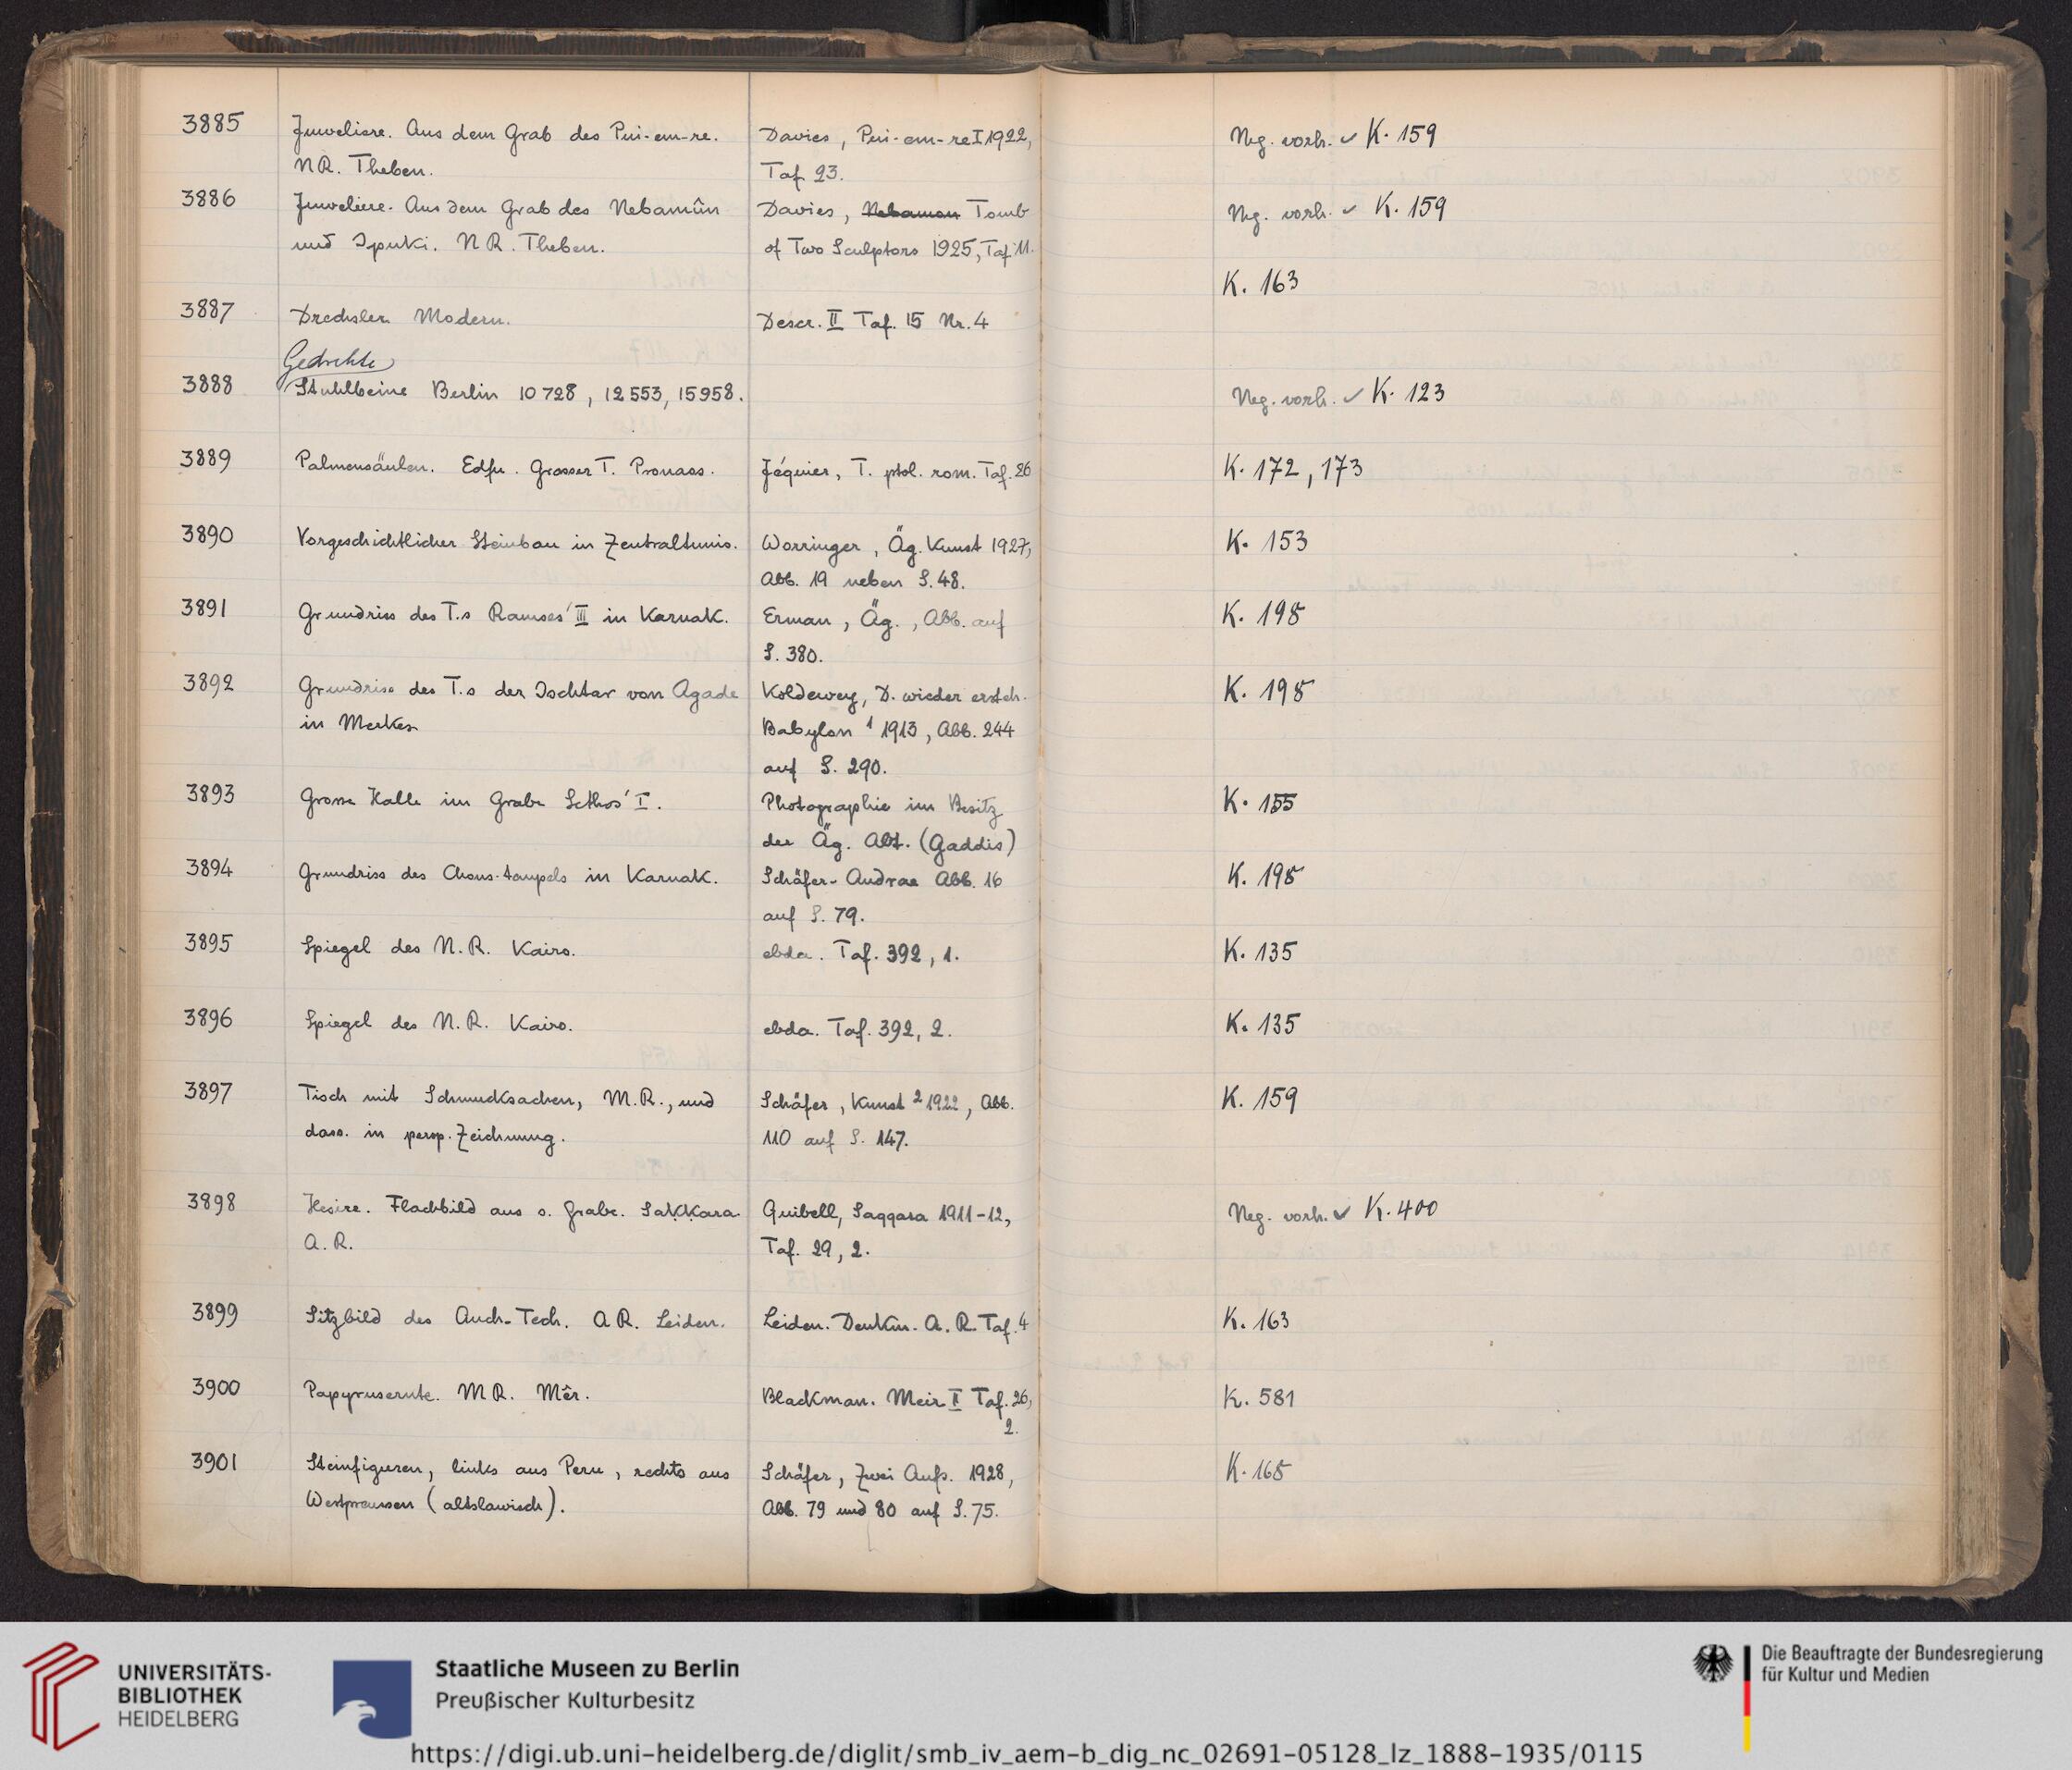 3885 Juweliere. Aus dem Grab des Pui-em-re. Davies, Pui-em-re I 1922, Neg. vorh. ✓ K. 159
NR. Theben. Taf. 23.
3886 Juweliere. Aus dem Grab des Nebamûn Davies, Nebamon Tomb Neg. vorh. ✓ K. 159
und Ipuki. NR. Theben. of Two Sculptors 1925, Taf. 11.
K. 163
3887 Drechsler. Modern. Descr. II Taf. 15 Nr. 4
Gedrehte
3888 Stuhlbeine Berlin 10728, 12553, 15958. Neg. vorh. ✓ K. 123
3889 Palmensäulen. Edfu. Grosser T. Pronaos. Jéquier, T. ptol. rom. Taf. 26 K. 172, 173
3890 Vorgeschichtlicher Steinbau in Zentraltunis. Worringer, Äg. Kunst 1927, K. 153
Abb. 19 neben S. 48.
3891 Grundriss des T.s Ramses' III in Karnak. Erman, Äg., Abb. auf K. 198
S. 380.
3892 Grundriss des T.s der Ischtar von Agade Koldewey, D. wieder ersteh. K. 198
in Merkes Babylon ¹ 1913, Abb. 244
auf S. 290.
3893 Grosse Halle im Grabe Sethos' I. Photographie im Besitz K. 155
der Äg. Abt. (Gaddis)
3894 Grundriss des Chons-tempels in Karnak. Schäfer-Andrae Abb. 16 K. 198
auf S. 79.
3895 Spiegel des N.R. Kairo. ebda. Taf. 392, 1. K. 135
3896 Spiegel des N.R. Kairo. ebda. Taf. 392, 2. K. 135
3897 Tisch mit Schmucksachen, M.R., und Schäfer, Kunst ² 1922, Abb. K. 159
dass. in persp. Zeichnung. 110 auf S. 147.
3898 Hesire. Flachbild aus s. Grabe. Saḳḳara. Quibell, Saqqara 1911-12, Neg. vorh. ✓ K. 400
A.R. Taf. 29, 2.
3899 Sitzbild des Anch-Tech. A.R. Leiden. Leiden. Denkm. A.R. Taf. 4 K. 163
3900 Papyrusernte. MR. Mêr. Blackman. Meir II Taf. 26, K. 581
2.
3901 Steinfiguren, links aus Peru, rechts aus Schäfer, Zwei Aufs. 1928, K. 165
Westpreussen (altslawisch). Abb. 79 und 80 auf S. 75.
UNIVERSITÄTS-
BIBLIOTHEK
HEIDELBERG
Staatliche Museen zu Berlin
Preußischer Kulturbesitz
Die Beauftragte der Bundesregierung
für Kultur und Medien
https://digi.ub.uni-heidelberg.de/diglit/smb_iv_aem-b_dig_nc_02691-05128_lz_1888-1935/0115